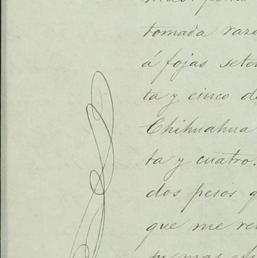 tomada razo
á fojas seten
ta y cinco d
Chihuahua
ta y cuatro.
dos pesos q
que me re
su mas